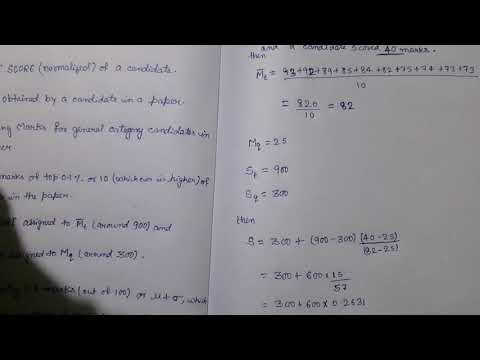 SCORE (normalized) of a candidate.
obtained by a candidate in a paper.
ing Marks for general category candidates in
er
marks of top 0.1% or 10 (whichever is higher) of
in the paper.
assigned to M̄t (around 900) and
assigned to Mq (around 300).
marks (out of 100) or μ+σ, which
and a candidate scored 40 marks.
then
M̄t = 93+92+89+85+84+82+75+74+73+73
10
= 820
10
= 82
Mq = 25
St = 900
Sq = 300
then
S = 300 + (900-300) (40-25)
(82-25)
= 300 + 600 × 15
57
= 300 + 600 × 0.2631